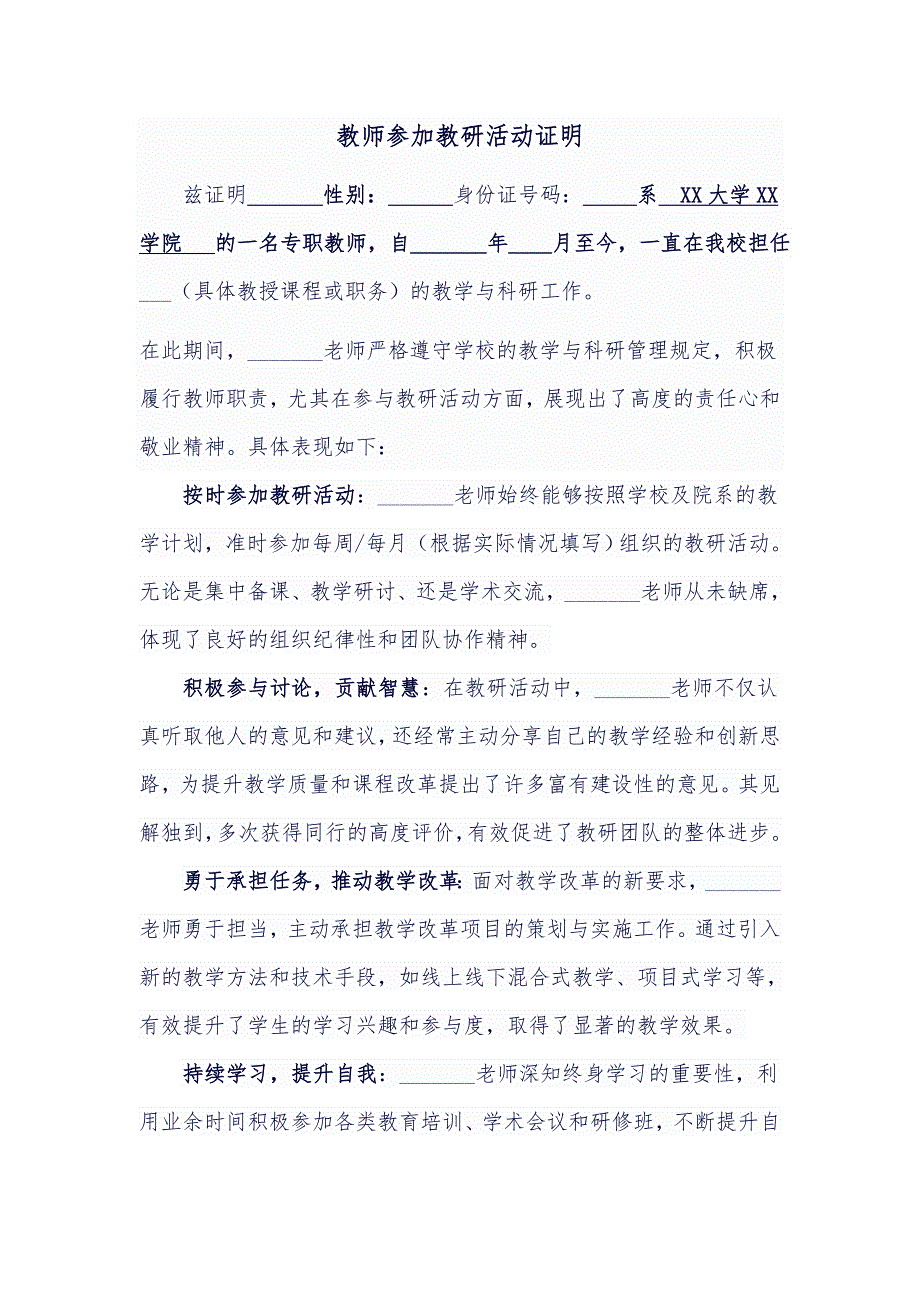 教师参加教研活动证明
兹证明_______性别：______身份证号码：_____系  XX大学XX
学院   的一名专职教师，自_______年____月至今，一直在我校担任
___（具体教授课程或职务）的教学与科研工作。
在此期间，_______老师严格遵守学校的教学与科研管理规定，积极
履行教师职责，尤其在参与教研活动方面，展现出了高度的责任心和
敬业精神。具体表现如下：
按时参加教研活动：_______老师始终能够按照学校及院系的教
学计划，准时参加每周/每月（根据实际情况填写）组织的教研活动。
无论是集中备课、教学研讨、还是学术交流，_______老师从未缺席，
体现了良好的组织纪律性和团队协作精神。
积极参与讨论，贡献智慧：在教研活动中，_______老师不仅认
真听取他人的意见和建议，还经常主动分享自己的教学经验和创新思
路，为提升教学质量和课程改革提出了许多富有建设性的意见。其见
解独到，多次获得同行的高度评价，有效促进了教研团队的整体进步。
勇于承担任务，推动教学改革：面对教学改革的新要求，_______
老师勇于担当，主动承担教学改革项目的策划与实施工作。通过引入
新的教学方法和技术手段，如线上线下混合式教学、项目式学习等，
有效提升了学生的学习兴趣和参与度，取得了显著的教学效果。
持续学习，提升自我：_______老师深知终身学习的重要性，利
用业余时间积极参加各类教育培训、学术会议和研修班，不断提升自